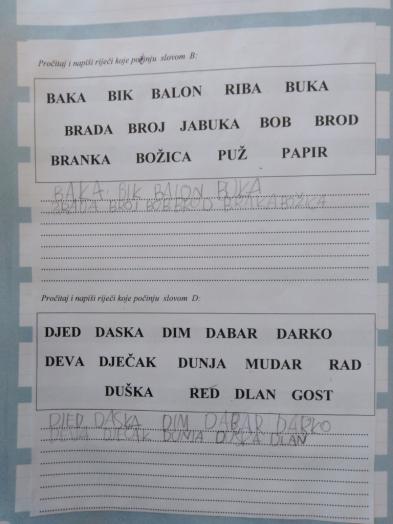 Pročitaj i napiši riječi koje počinju slovom B:
BAKA BIK BALON RIBA BUKA
BRADA BROJ JABUKA BOB BROD
BRANKA BOŽICA PUŽ PAPIR
BAKA BIK BALON BUKA
BRADA BROJ BOB BROD BRAKA BOŽICA
Pročitaj i napiši riječi koje počinju slovom D:
DJED DASKA DIM DABAR DARKO
DEVA DJEČAK DUNJA MUDAR RAD
DUŠKA RED DLAN GOST
DJED DASKA DIM DABAR DARKO
DEVA DJEČAK DUNJA DUŠKA DLAN